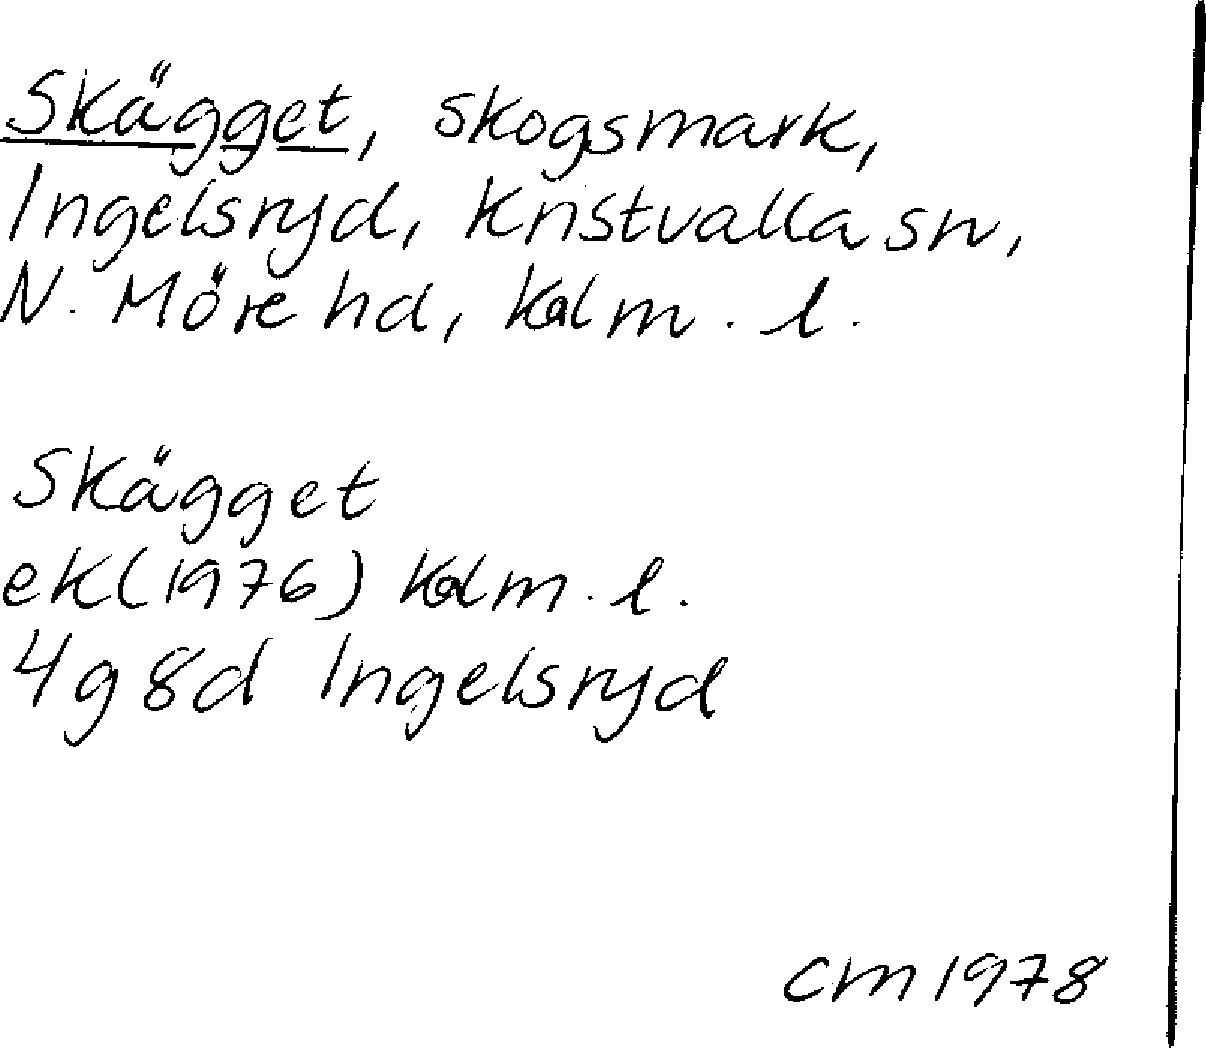 Skägget, skogsmark,
Ingelsryd, Kristvalla sn,
N. Möre hd, Kalm. l.
Skägget
ek (1976) Kalm. l.
4g8d Ingelsryd
CM 1978